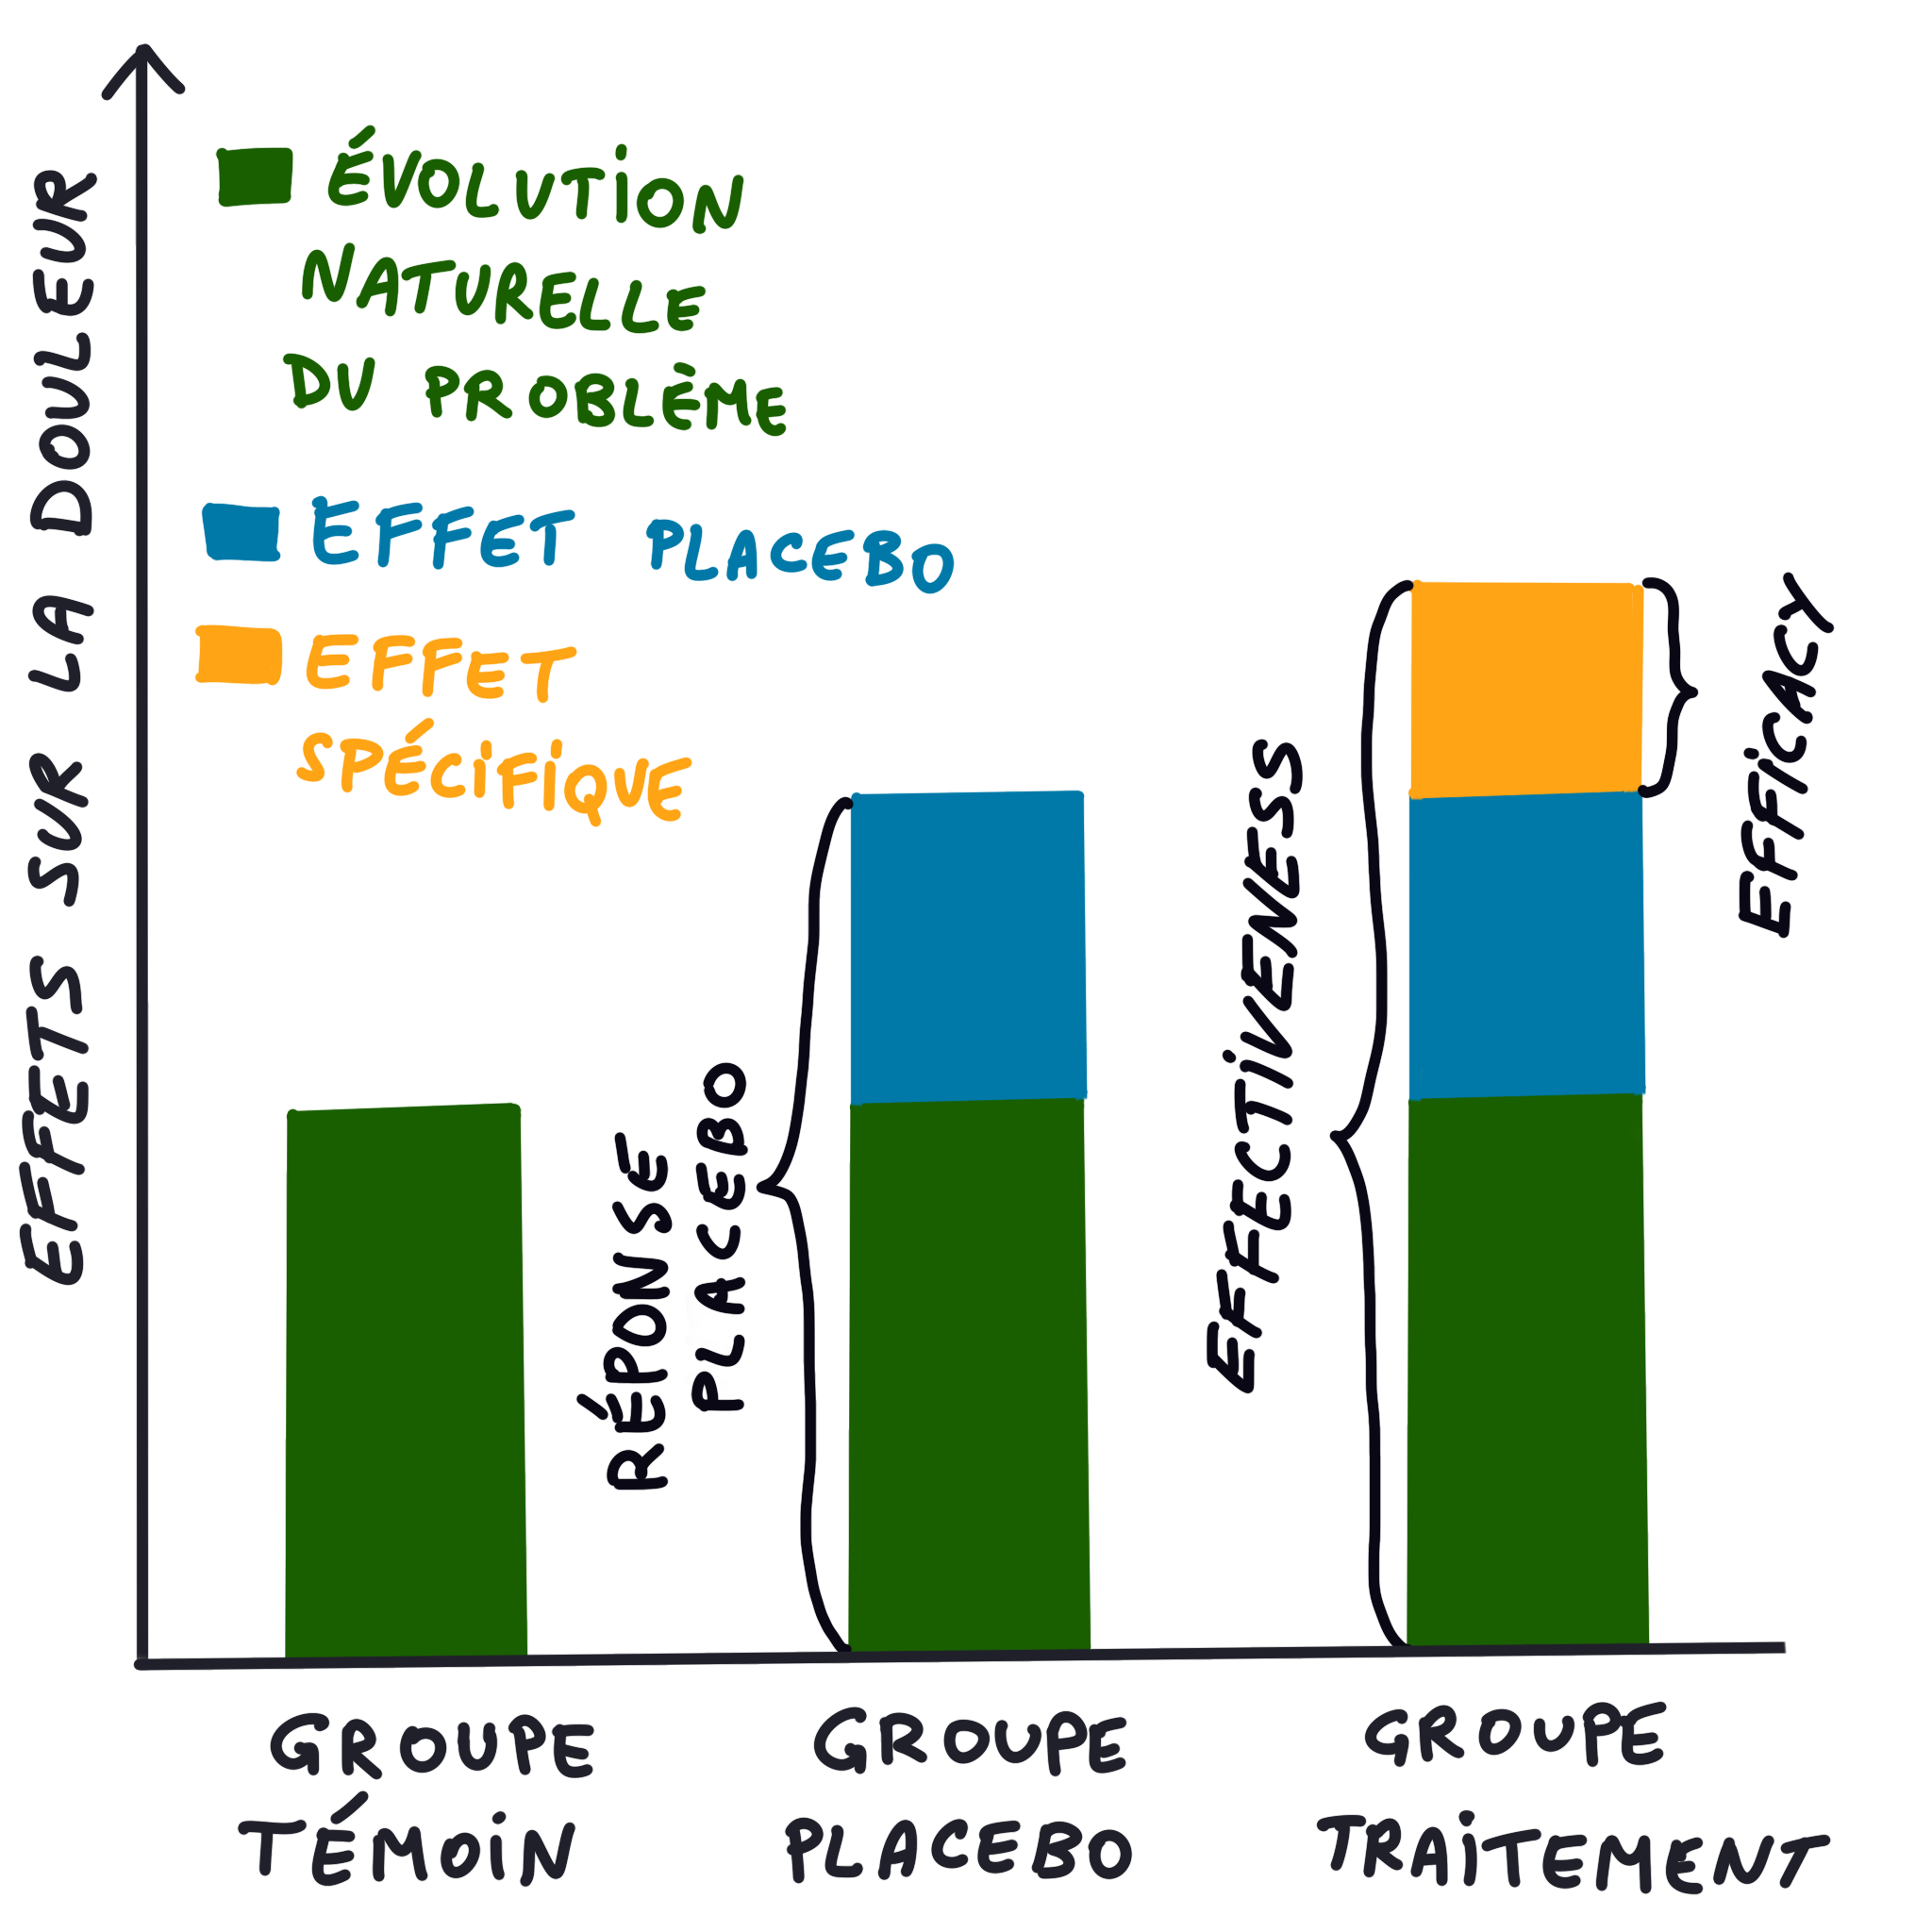 EFFETS SUR LA DOULEUR
ÉVOLUTION
NATURELLE
DU PROBLÈME
EFFET PLACEBO
EFFET
SPÉCIFIQUE
RÉPONSE
PLACEBO
EFFECTIVENESS
EFFICACY
GROUPE
TÉMOIN
GROUPE
PLACEBO
GROUPE
TRAITEMENT